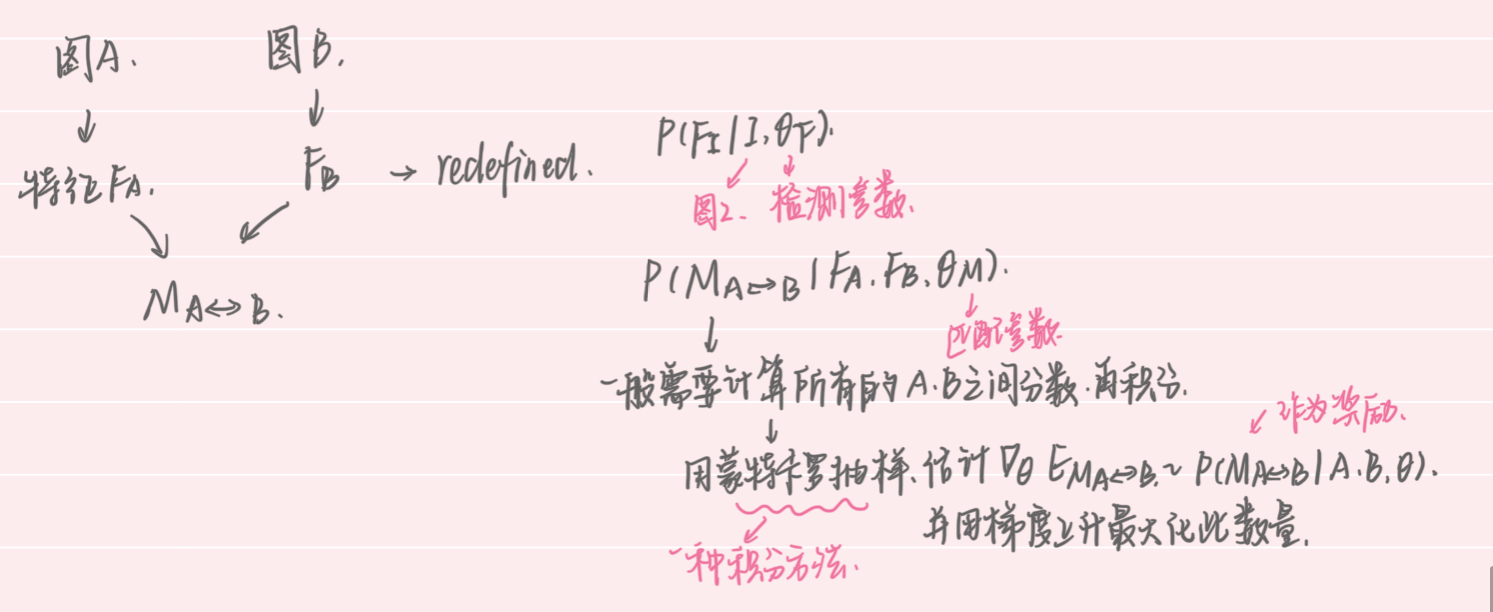 图A.
图B.
特征FA.
FB → redefined.
MA↔B.
P(FI|I,θF).
图2. 检测参数.
P(MA↔B|FA.FB.θM).
匹配参数.
一般需要计算所有的A.B之间分数.再积分.
作为奖励.
用蒙特卡罗抽样.估计∇θ EMA↔B.~P(MA↔B|A.B,θ).
并用梯度上升最大化此数量.
一种积分方法.